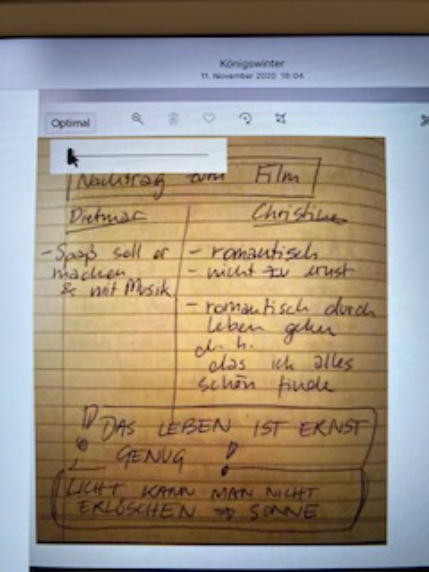 Königswinter
11. November 2020 18:04
Optimal
Nachtrag zum Film
Dietmar
Christine
- Spaß soll er
machen
& mit Musik
- romantisch
- nicht zu ernst
- romantisch durch
leben gehen
d.h.
das ich alles
schön finde
DAS LEBEN IST ERNST
GENUG !
LICHT KANN MAN NICHT
ERLÖSCHEN => SONNE